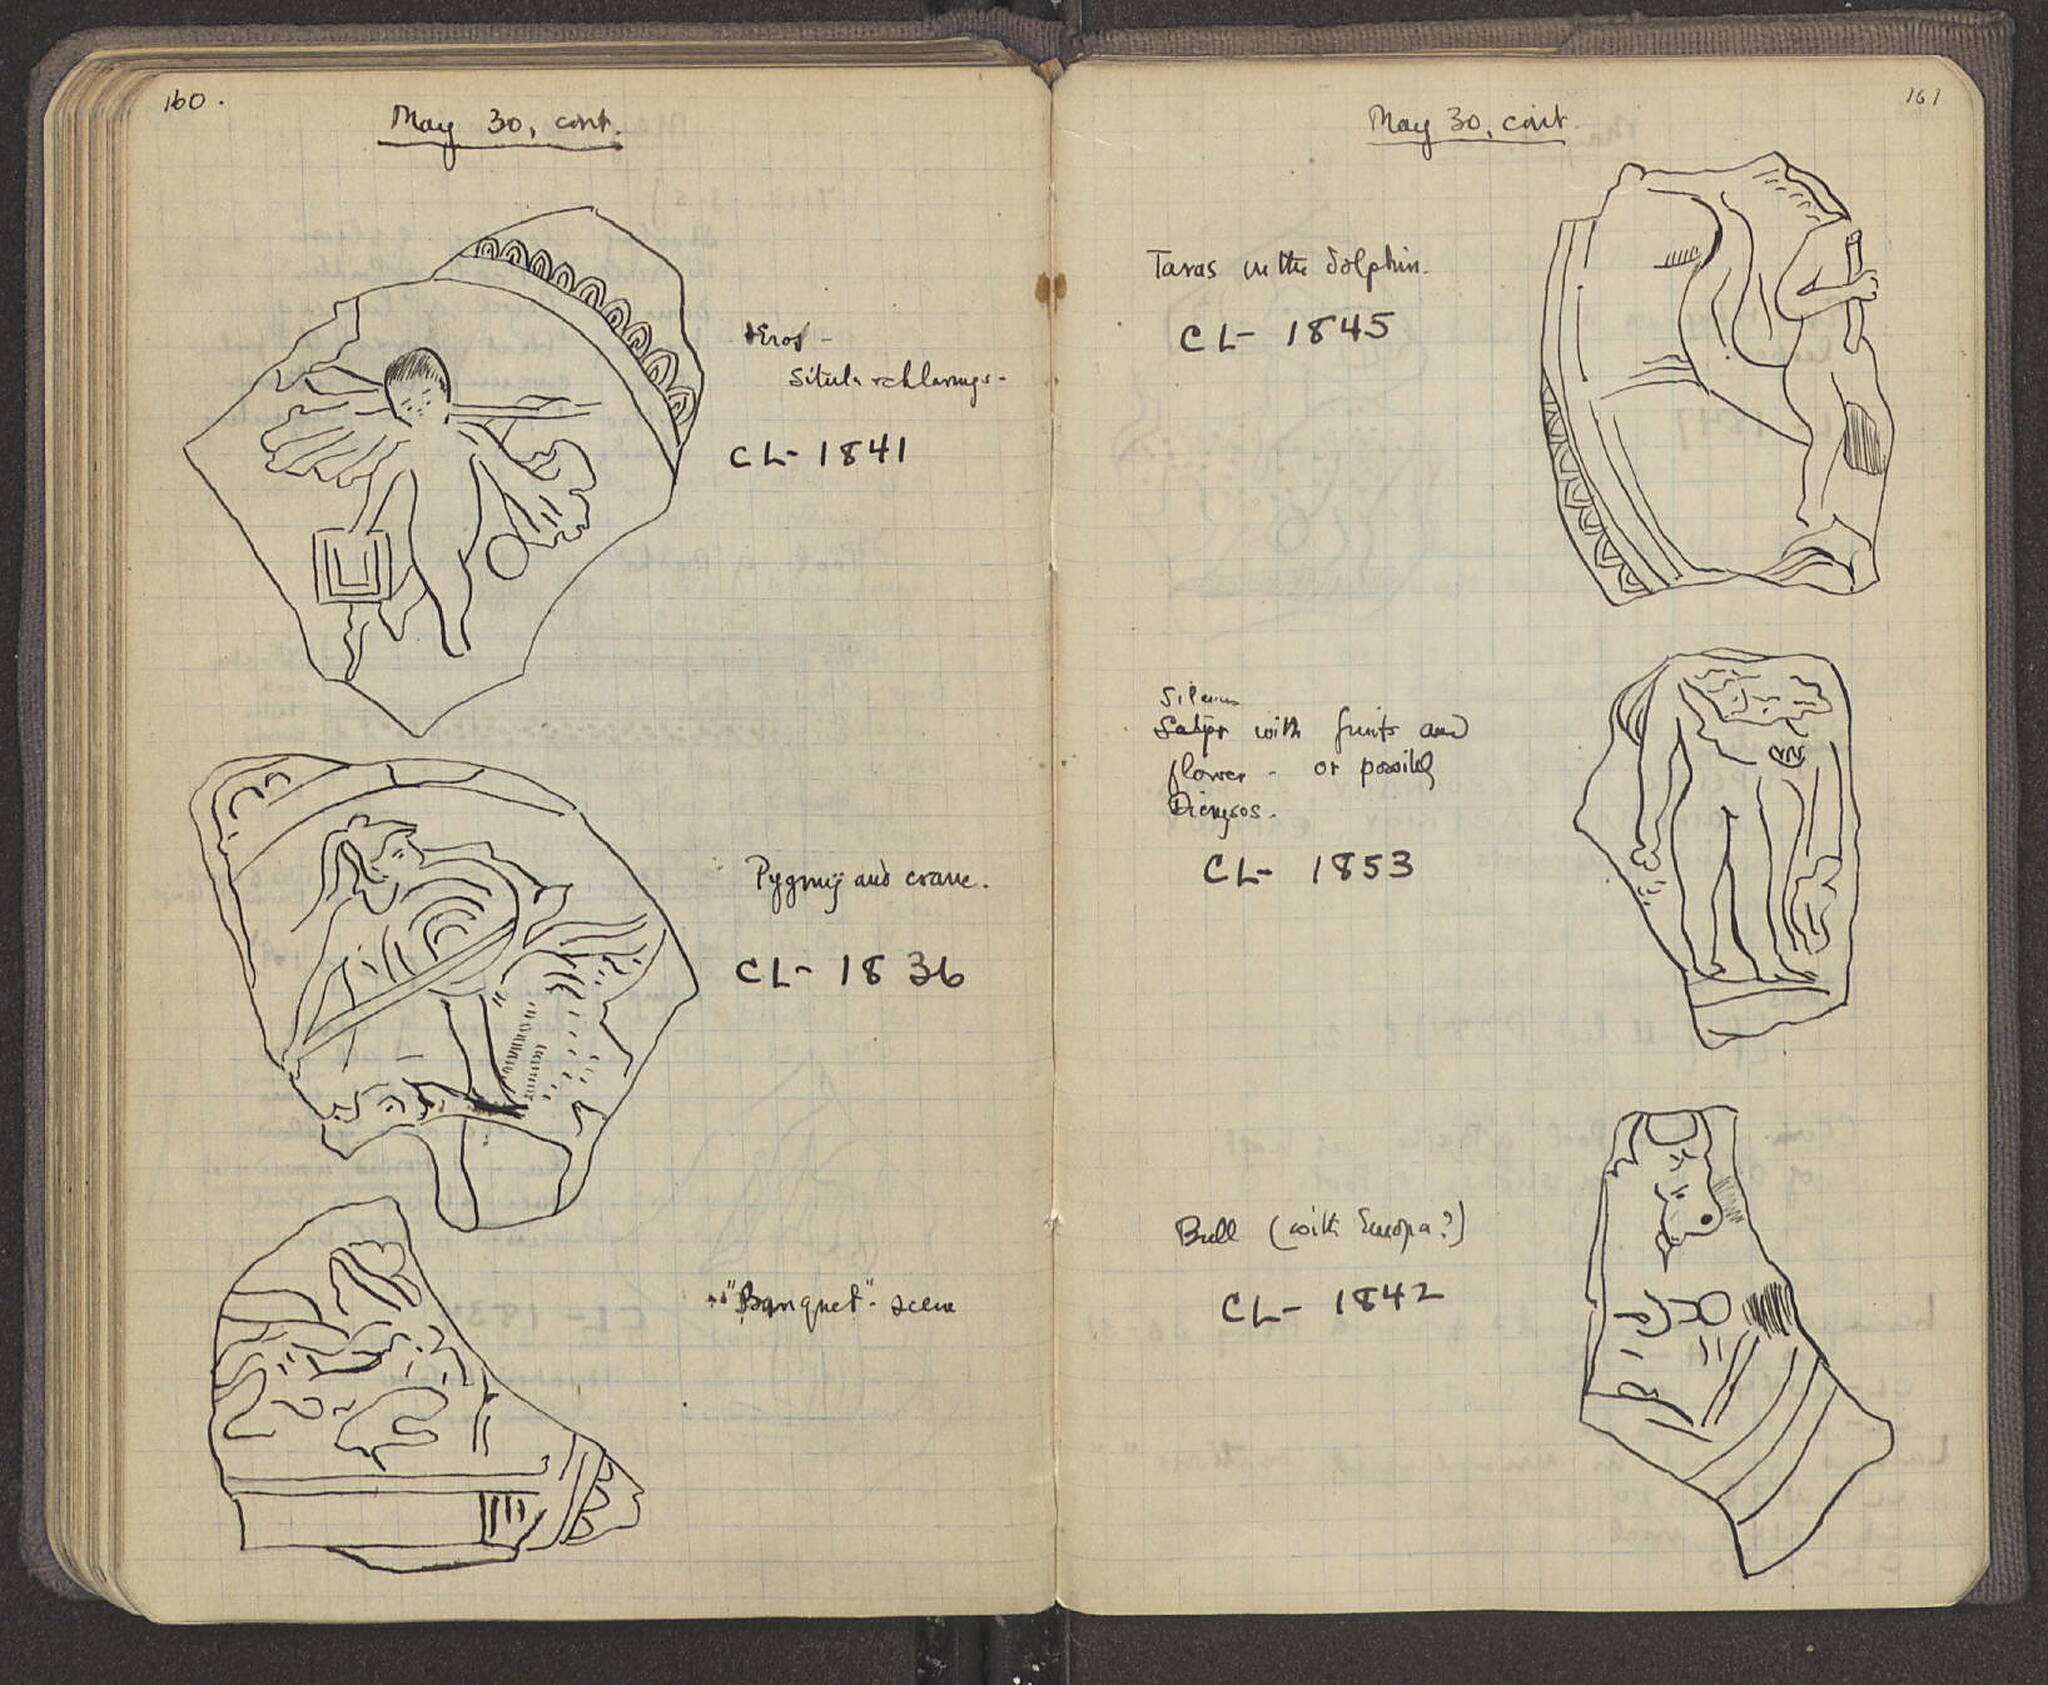 160.
May 30, cont.
Eros -
Situla + chlamys -
CL- 1841
Pygmy and crane.
CL- 1836
"Banquet"- scene
161
May 30, cont
Taras on the dolphin.
CL- 1845
Silenus
Satyr with fruits and
flower - or possibly
Dionysos -
CL- 1853
Bull (with Europa?)
CL- 1842